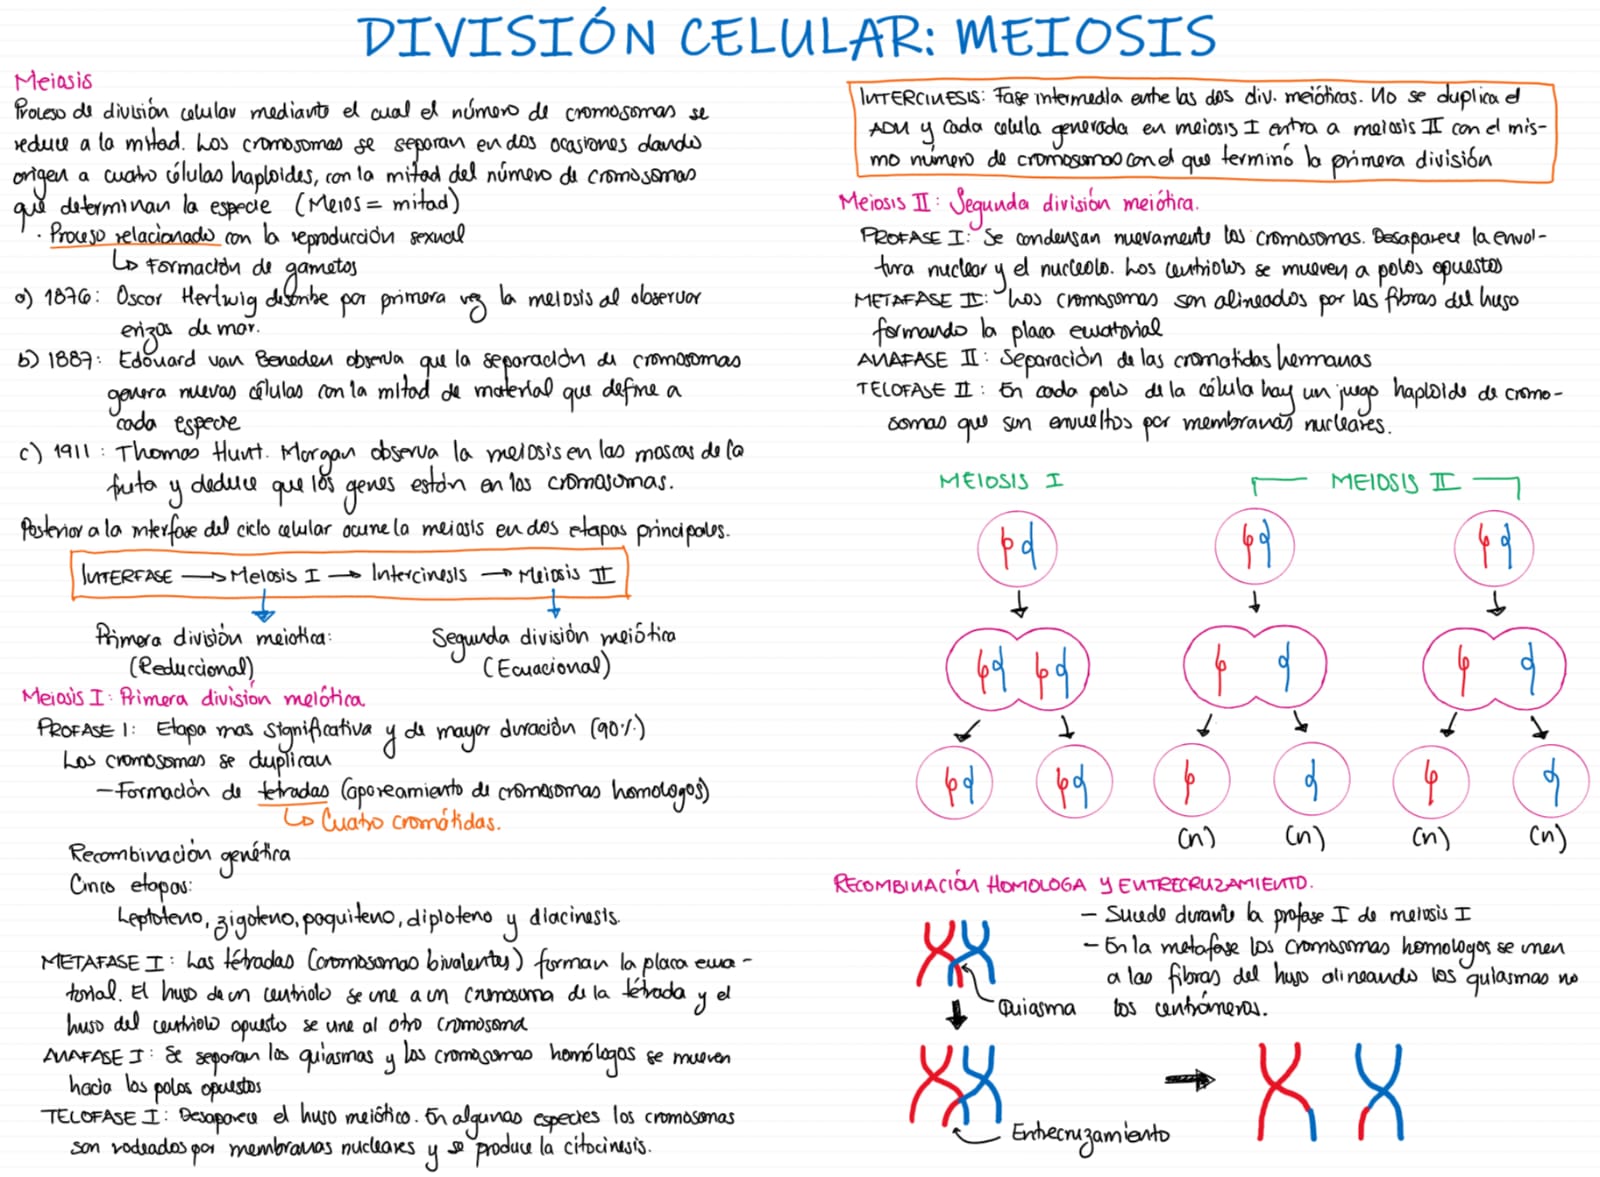 DIVISIÓN CELULAR: MEIOSIS
Meiosis
Proceso de división celular mediante el cual el número de cromosomas se
reduce a la mitad. Los cromosomas se separan en dos ocasiones dando
origen a cuatro células haploides, con la mitad del número de cromosomas
que determinan la especie (Meios = mitad)
· Proceso relacionado con la reproducción sexual
↳ Formación de gametos
a) 1876: Oscar Hertwig describe por primera vez la meiosis al observar
erizos de mar.
b) 1887: Edouard van Beneden observa que la separación de cromosomas
genera nuevas células con la mitad de material que define a
cada especie
c) 1911: Thomas Hunt. Morgan observa la meiosis en las moscas de la
fruta y deduce que los genes están en los cromosomas.
Posterior a la interfase del ciclo celular ocurre la meiosis en dos etapas principales.
INTERFASE → Meiosis I → Intercinesis → Meiosis II
Primera división meiotica: Segunda división meiótica
(Reduccional) (Ecuacional)
Meiosis I: Primera división meiótica.
PROFASE I: Etapa mas significativa y de mayor duración (90%)
Los cromosomas se duplican
- Formación de tetradas (apareamiento de cromosomas homologos)
↳ Cuatro cromátidas.
Recombinación genética
Cinco etapas:
Leptoteno, zigoteno, paquiteno, diploteno y diacinesis.
METAFASE I: Las tétradas (cromosomas bivalentes) forman la placa ecua-
torial. El huso de un centriolo se une a un cromosoma de la tétrada y el
huso del centriolo opuesto se une al otro cromosoma
ANAFASE I: Se separan los quiasmas y los cromosomas homólogos se mueven
hacia los polos opuestos
TELOFASE I: Desaparece el huso meiótico. En algunas especies los cromosomas
son rodeados por membranas nucleares y se produce la citocinesis.
INTERCINESIS: Fase intermedia entre las dos div. meióticas. No se duplica el
ADN y cada celula generada en meiosis I entra a meiosis II con el mis-
mo número de cromosomas con el que terminó la primera división
Meiosis II: Segunda división meiótica.
PROFASE I: Se condensan nuevamente los cromosomas. Desaparece la envol-
tura nuclear y el nucleolo. Los centriolos se mueven a polos opuestos
METAFASE II: Los cromosomas son alineados por las fibras del huso
formando la placa ecuatorial
ANAFASE II: Separación de las cromatidas hermanas
TELOFASE II: En cada polo de la célula hay un juego haploide de cromo-
somas que son envueltos por membranas nucleares.
MEIOSIS I MEIOSIS II
(n) (n) (n) (n)
RECOMBINACIÓN HOMOLOGA Y ENTRECRUZAMIENTO.
- Sucede durante la profase I de meiosis I
- En la metafase los cromosomas homologos se unen
a las fibras del huso alineando los quiasmas no
los centrómeros.
Quiasma
Entrecruzamiento